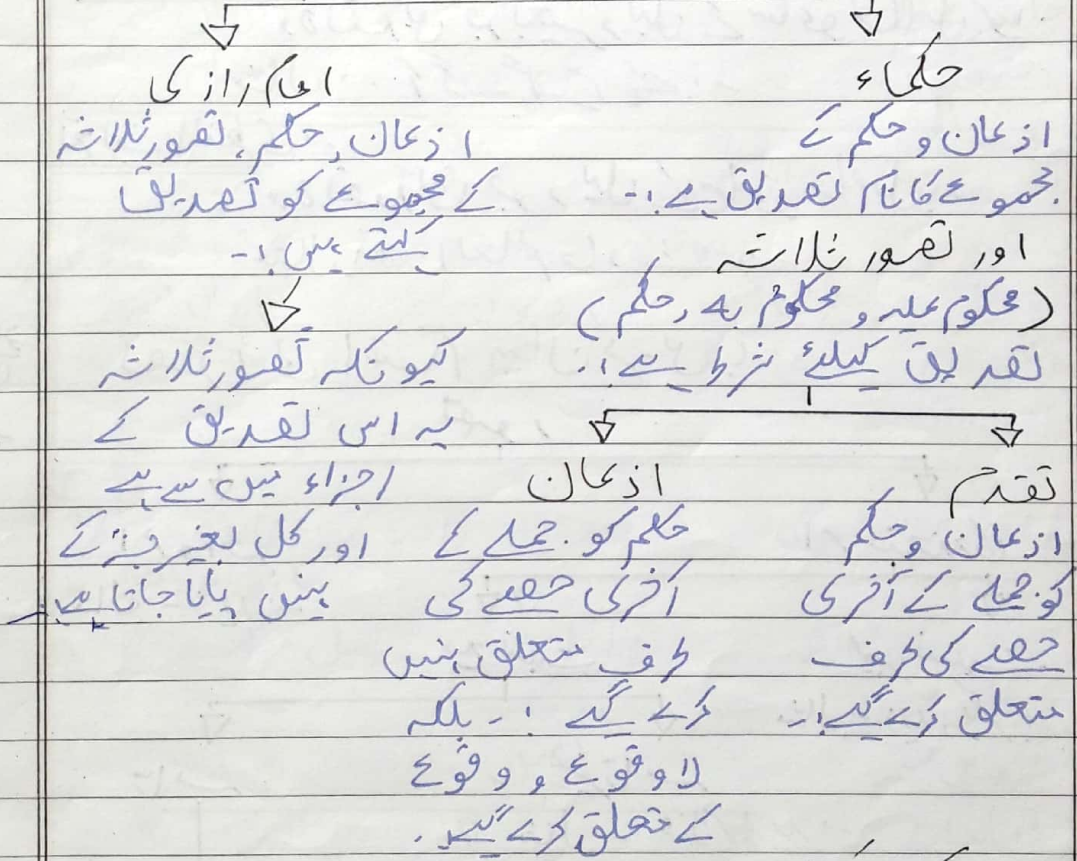 حکماء
اذعان و حکم کے
مجموعے کا نام تصدیق ہے :-
اور تصور ثلاثہ
(محکوم علیہ و محکوم بہ و حکم)
تصدیق کیلئے شرط ہے :-
تقدم
اذعان و حکم
کو جملے کے آخری
حصے کی طرف
متعلق کرے گیے :-
اذعان
حکم کو جملے کے
آخری حصے کی
طرف متعلق نہیں
کرے گیے :- بلکہ
لا وقوع و وقوع
کے متعلق کرے گیے
امام رازی
اذعان, حکم, تصور ثلاثہ
کے مجموعے کو تصدیق
کہتے ہیں :-
کیونکہ تصور ثلاثہ
یہ اس تصدیق کے
اجزاء میں سے ہے
اور کل بغیر جز کے
نہیں پایا جاتا ہے